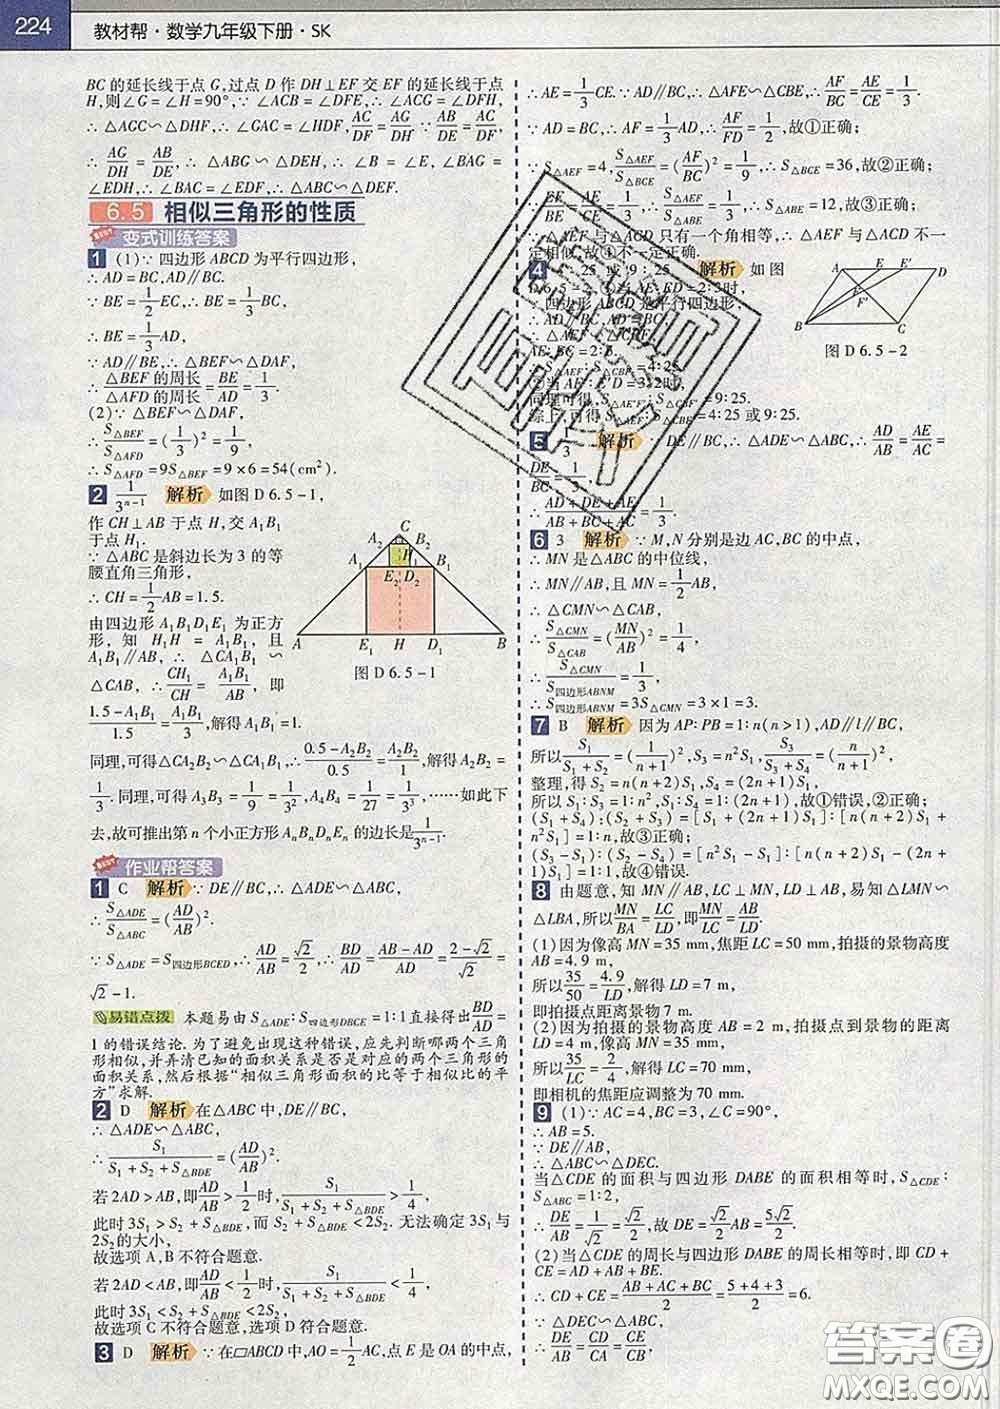 224
教材帮·数学九年级下册·SK
BC 的延长线于点 G,过点 D 作 DH⊥EF 交 EF 的延长线于点
H,则∠G = ∠H = 90°,∵ ∠ACB = ∠DFE,∴ ∠ACG = ∠DFH,
∴ △AGC∽△DHF,∴ ∠GAC = ∠HDF, AC/DF = AG/DH = AC/DF. ∵ AB/DE = AC/DF,
∴ AG/DH = AB/DE, ∴ △ABG∽△DEH,∴ ∠B = ∠E, ∠BAG =
∠EDH,∴ ∠BAC = ∠EDF,∴ △ABC∽△DEF.
6.5 相似三角形的性质
变式训练答案
1 (1)∵ 四边形 ABCD 为平行四边形,
∴ AD = BC,AD∥BC.
∵ BE = 1/2 EC,∴ BE = 1/3 BC,
∴ BE = 1/3 AD,
∵ AD∥BE,∴ △BEF∽△DAF,
∴ △BEF的周长/△AFD的周长 = BE/AD = 1/3.
(2)∵ △BEF∽△DAF,
∴ S△BEF/S△AFD = (1/3)² = 1/9,
∴ S△AFD = 9S△BEF = 9×6 = 54(cm²).
2 1/3ⁿ⁻¹ 解析 如图 D 6.5-1,
作 CH⊥AB 于点 H,交 A₁B₁
于点 H₁.
∵ △ABC 是斜边长为 3 的等
腰直角三角形,
∴ CH = 1/2 AB = 1.5.
由四边形 A₁B₁D₁E₁ 为正方
形, 知 H₁H = A₁B₁, 且
A₁B₁∥AB, ∴ △CA₁B₁ ∽
△CAB, ∴ CH₁/CH = A₁B₁/AB, 即
(1.5-A₁B₁)/1.5 = A₁B₁/3,解得 A₁B₁ = 1.
C
A₂ B₂
A₁ H₁ B₁
E₂ D₂
A E₁ H D₁ B
图 D 6.5-1
同理,可得△CA₂B₂∽△CA₁B₁,∴ (0.5-A₂B₂)/0.5 = A₂B₂/1,解得 A₂B₂ =
1/3. 同理,可得 A₃B₃ = 1/9 = 1/3², A₄B₄ = 1/27 = 1/3³,……如此下
去,故可推出第 n 个小正方形 AₙBₙDₙEₙ 的边长是 1/3ⁿ⁻¹.
作业帮答案
1 C 解析 ∵ DE∥BC,∴ △ADE∽△ABC,
∴ S△ADE/S△ABC = (AD/AB)².
∵ S△ADE = S四边形BCED,∴ AD/AB = √2/2, ∴ BD/AD = (AB-AD)/AD = (2-√2)/√2 =
√2-1.
易错点拨 本题易由 S△ADE∶S四边形DBCE = 1∶1直接得出 BD/AD =
1 的错误结论. 为了避免出现这种错误,应先判断哪两个三角
形相似,并弄清已知的面积关系是否是对应的两个三角形的
面积关系,然后根据“相似三角形面积的比等于相似比的平
方”求解.
2 D 解析 在△ABC 中,DE∥BC,
∴ △ADE∽△ABC,
∴ S₁/(S₁+S₂+S△BDE) = (AD/AB)².
若 2AD > AB,即 AD/AB > 1/2 时, S₁/(S₁+S₂+S△BDE) > 1/4,
此时 3S₁ > S₂ + S△BDE,而 S₂ + S△BDE < 2S₂. 无法确定 3S₁ 与
2S₂ 的大小,
故选项 A,B 不符合题意.
若 2AD < AB,即 AD/AB < 1/2 时, S₁/(S₁+S₂+S△BDE) < 1/4,
此时 3S₁ < S₂ + S△BDE < 2S₂,
故选项 C 不符合题意,选项 D 符合题意.
3 D 解析 ∵ 在▱ABCD 中,AO = 1/2 AC,点 E 是 OA 的中点,
∴ AE = 1/3 CE. ∵ AD∥BC,∴ △AFE∽△CBE,∴ AF/BC = AE/CE = 1/3.
∵ AD = BC,∴ AF = 1/3 AD,∴ AF/FD = 1/2,故①正确;
∵ S△AEF = 4, S△AEF/S△BCE = (AF/BC)² = 1/9,∴ S△BCE = 36,故②正确;
∵ EF/BE = AE/CE = 1/3, ∴ S△AEF/S△ABE = 1/3, ∴ S△ABE = 12,故③正确;
∵ △AEF 与 △ACD 只有一个角相等,∴ △AEF 与 △ACD 不一
定相似,故④不一定正确.
4 4∶25 或 9∶25 解析 如图
D 6.5-2,①当 AE∶ED = 2∶3时,
∵ 四边形 ABCD 是平行四边形,
∴ AD∥BC,AD = BC,
∴ △AEF∽△CBF,
AE∶BC = 2∶5,
∴ S△AEF∶S△CBF = 4∶25.
②当 AE′∶E′D = 3∶2时,
同理可得,S△AE′F′∶S△CBF′ = 9∶25.
综上,可得 S△AEF∶S△CBF = 4∶25 或 9∶25.
A E E′ D
F
F′
B C
图 D 6.5-2
5 1/3 解析 ∵ DE∥BC,∴ △ADE∽△ABC,∴ AD/AB = AE/AC =
DE/BC = 1/3,
∴ (AD+DE+AE)/(AB+BC+AC) = 1/3.
6 3 解析 ∵ M,N 分别是边 AC,BC 的中点,
∴ MN 是△ABC 的中位线,
∴ MN∥AB,且 MN = 1/2 AB,
∴ △CMN∽△CAB,
∴ S△CMN/S△CAB = (MN/AB)² = 1/4,
∴ S△CMN/S四边形ABNM = 1/3,
∴ S四边形ABNM = 3S△CMN = 3×1 = 3.
7 B 解析 因为 AP∶PB = 1∶n(n>1),AD∥l∥BC,
所以 S₁/(S₁+S₂) = (1/(n+1))², S₃/(S₃+S₂) = (n/(n+1))²,
整理,得 S₂ = n(n+2)S₁, S₃ = n²S₁,
所以 S₁∶S₃ = 1∶n²,故①错误,②正确;
8 由题意,知 MN∥AB,LC⊥MN,LD⊥AB,易知△LMN∽
△LBA,所以 MN/BA = LC/LD,即 MN/LC = AB/LD.
(1)因为像高 MN = 35 mm,焦距 LC = 50 mm,拍摄的景物高度
AB = 4.9 m,
所以 35/50 = 4.9/LD,解得 LD = 7 m,
即拍摄点距离景物 7 m.
(2)因为拍摄的景物高度 AB = 2 m,拍摄点到景物的距离
LD = 4 m,像高 MN = 35 mm,
所以 35/LC = 2/4,解得 LC = 70 mm,
即相机的焦距应调整为 70 mm.
9 (1)∵ AC = 4,BC = 3,∠C = 90°,
∴ AB = 5.
∵ DE∥AB,
∴ △ABC∽△DEC.
当△CDE 的面积与四边形 DABE 的面积相等时,S△CDE∶
S△ABC = 1∶2,
∴ DE/AB = 1/√2 = √2/2,故 DE = √2/2 AB = 5√2/2.
(2)当△CDE 的周长与四边形 DABE 的周长相等时,即 CD +
CE = AD + AB + BE.
∴ CD + CE = (AB+AC+BC)/2 = (5+4+3)/2 = 6.
∵ △DEC∽△ABC,
∴ DE/AB = CD/CA = CE/CB,
答案圈
MXQE.COM